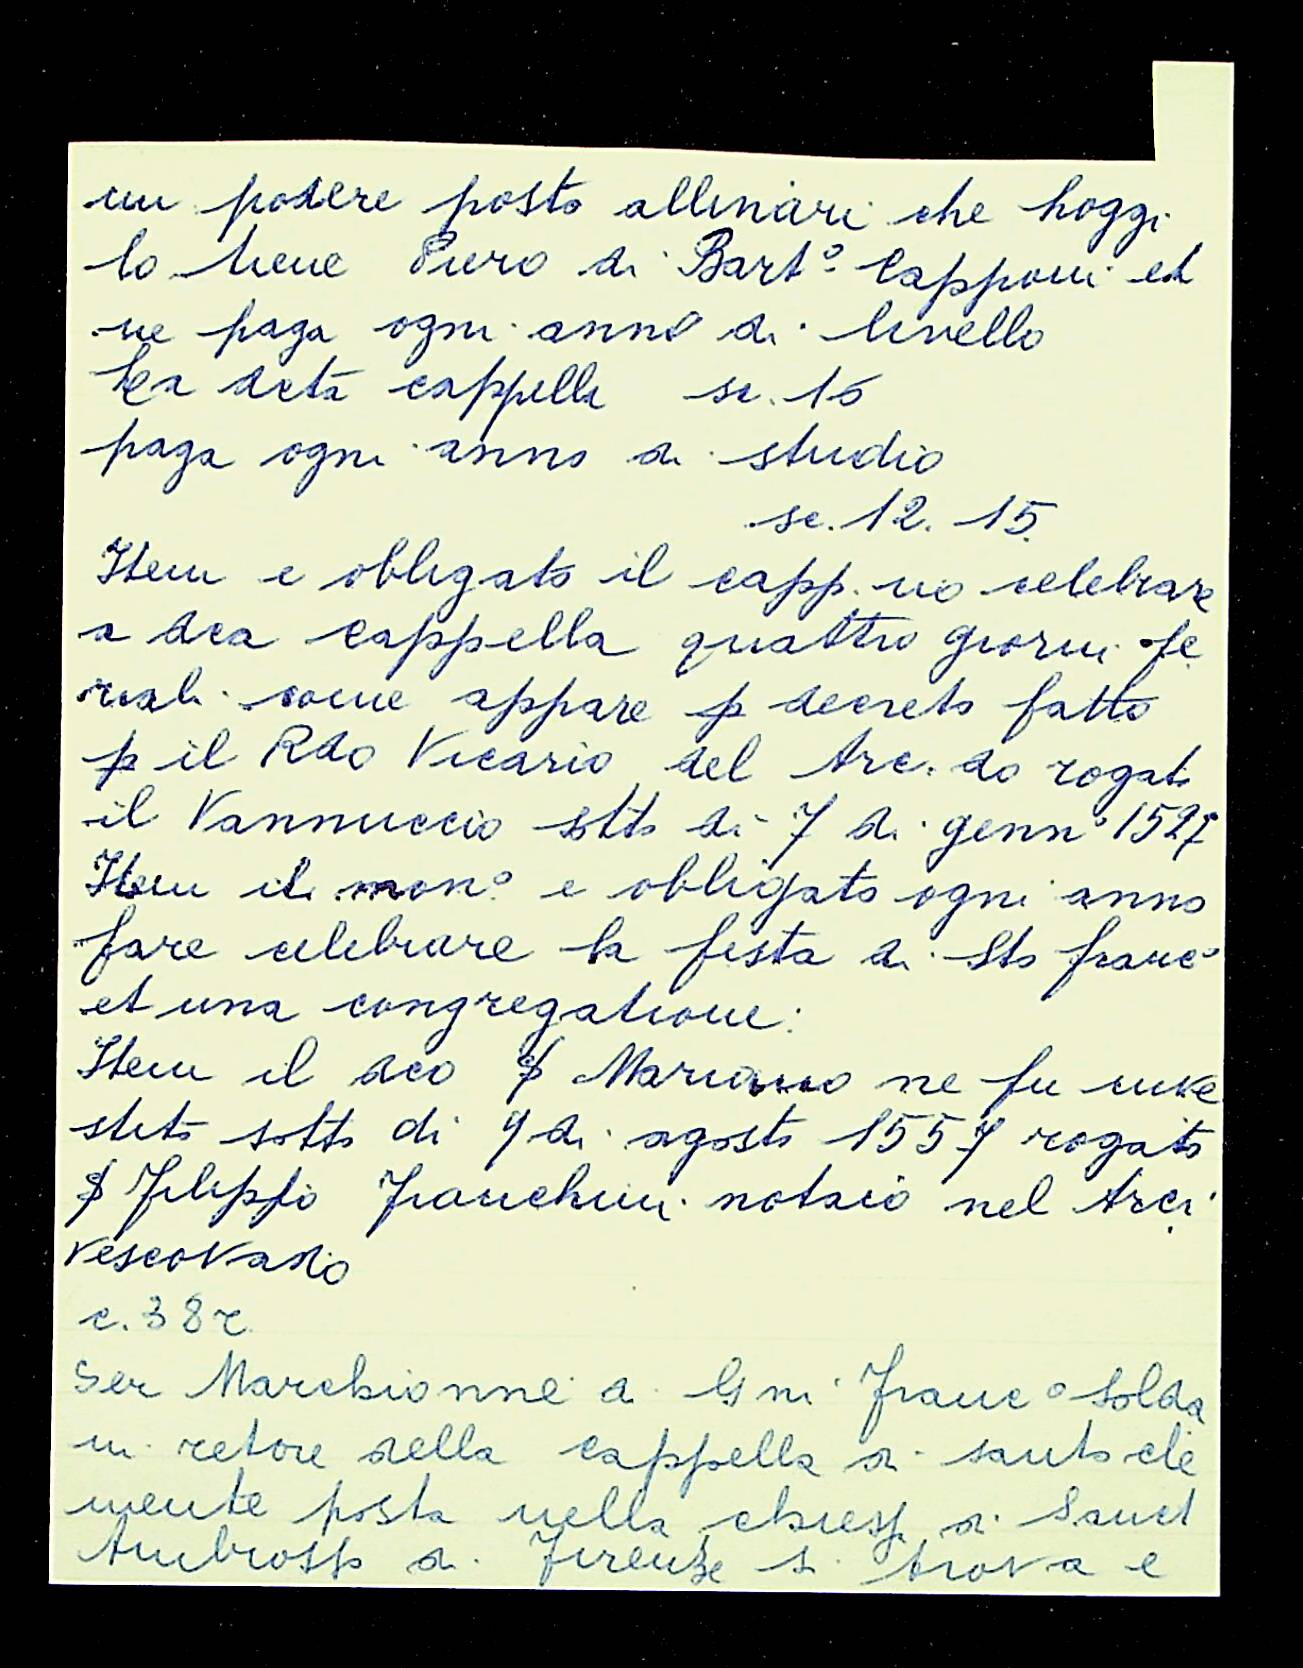 un podere posto allinari che hoggi
lo tiene Piero di Bart° Capponi et
ne paga ogni anno di livello
La detta cappella sc. 16
paga ogni anno di studio
sc. 12. 15.
Item e obligato il capp.no celebrare
a dca cappella quattro giorni fe
riali come appare p decreto fatto
p il Rdo Vicario del Arc.do rogato
il Vannuccio sotto di 7 di genn° 1527
Item il mon° e obligato ogni anno
fare celebrare la festa di Sto franc°
et una congregatione:
Item il dco S Mariano ne fu inve
stito sotto di 9 di agosto 1557 rogato
S Filippo Franchini notaio nel Arci
vescovado
c. 38r
Ser Marchionne di Gni Franc° Solda
ni retore della cappella di santo cle
mente posta nella chiesa di Sanct
Ambrosio di Firenze si trova e